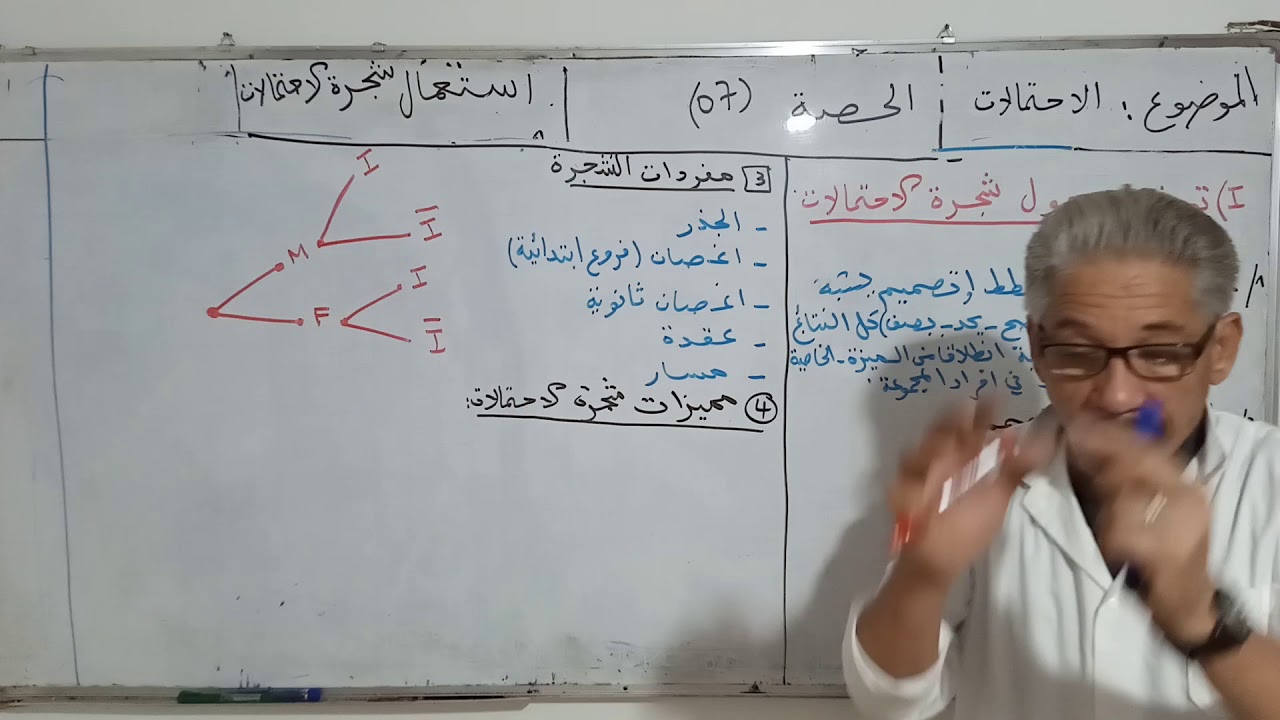 الموضوع : الاحتمالات
الحصة (07)
استعمال شجرة الاحتمالات
I) ول شجرة الاحتمالات
1/
طط / تصميم يشبه
كل النتائج
انطلاقا من الميزة - الخاصية
في افراد المجموعة .
3 مفردات الشجرة
- الجذر
- اغصان (فروع ابتدائية)
- اغصان ثانوية
- عقدة
- مسار
4 مميزات شجرة الاحتمالات:
I
M
I̅
I
F
I̅